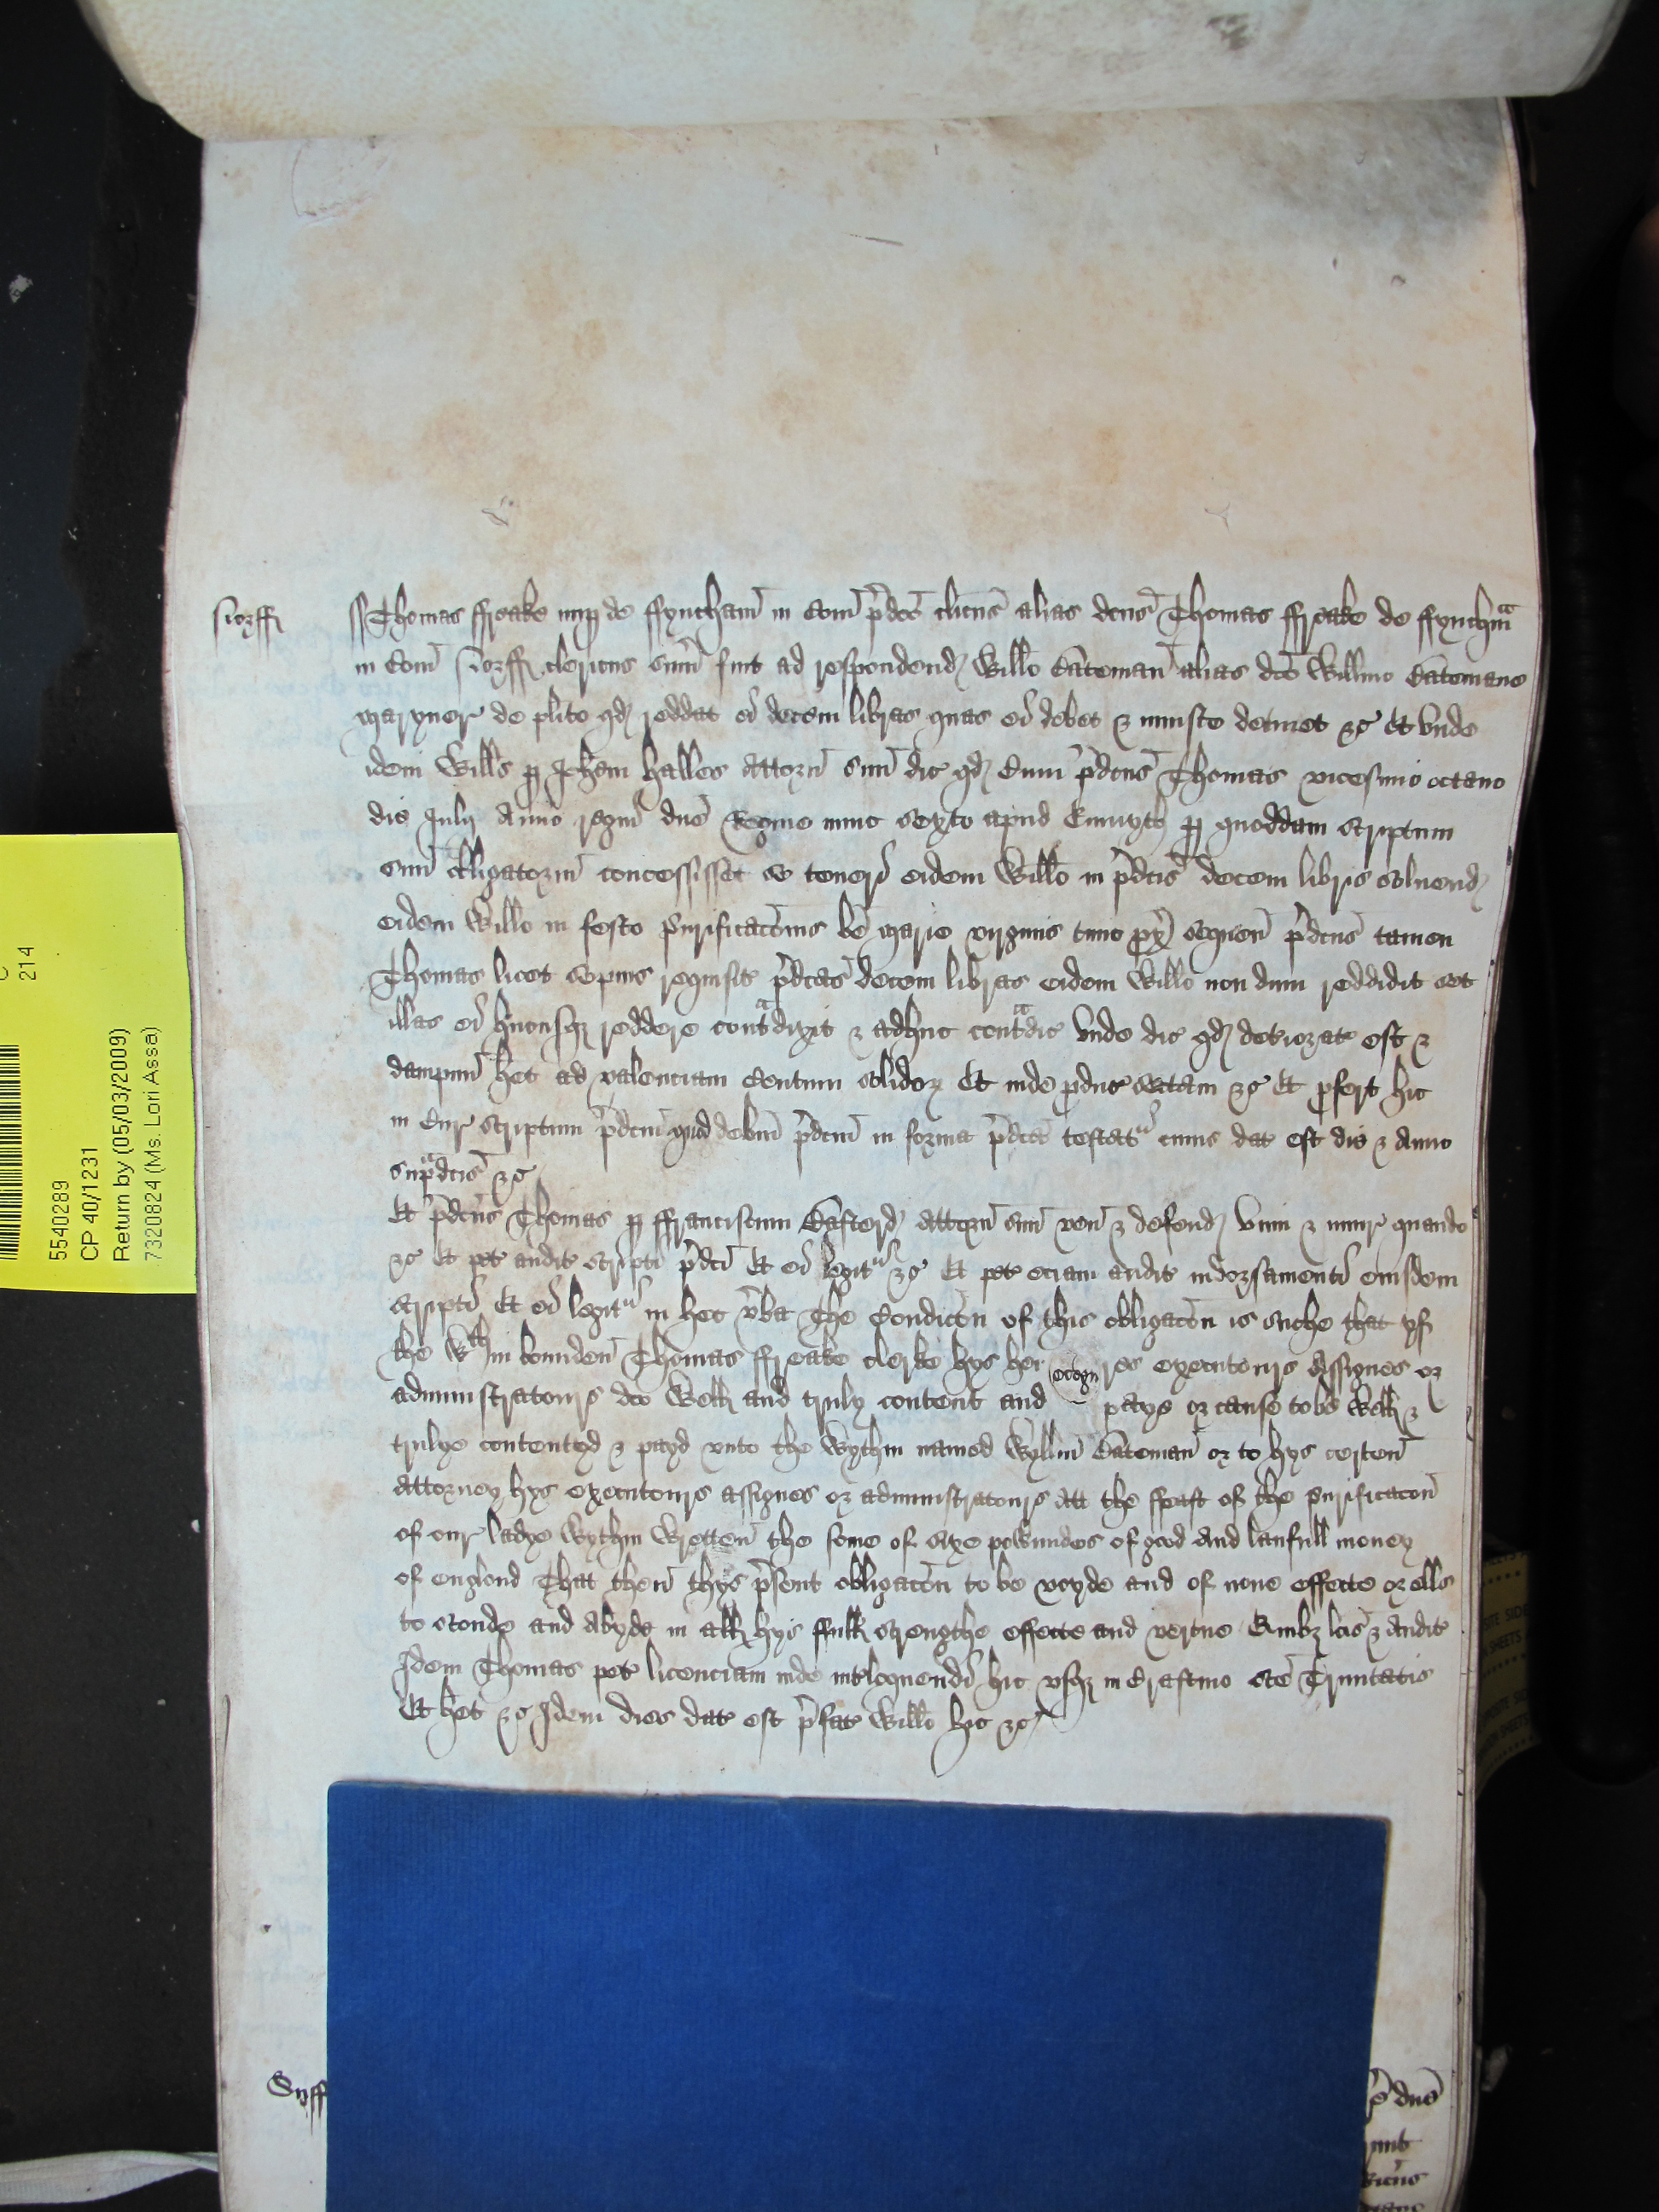 5540289
CP 40/1231
Return by (05/03/2009)
7320824 (Ms. Lori Assa)
214
Norff
Thomas ffreake nup de ffyncham in Com p̄dcō clicus alias dcūs Thomas ffreake de ffynchm̄
in Com Norff clericus sum fuit ad respondend Willo Bateman alias dcō Willmo Batemane
maryner de plito qd reddat ei decem libras quas ei debet & iniuste detinet &c Et unde
idem Wills p Johem Halles Attorn suu dic qd Cum p̄dcus Thomas vicesimo octavo
die July Anno regni dne Regine nunc sexto apud p quoddam scriptum
suu obligatoriu concessisset se teneri eidem Willo in p̄dcis decem libris solvend
eidem Willo in festo Purificacōnis be Marie virginis tunc px sequen p̄dcus tamen
Thomas licet sepius requisit p̄dcas decem libras eidem Willo non dum reddidit set
illas ei hucusq reddere contadixit & adhuc contadic Unde dic qd deteriorat est &
dampnu het ad valenciam Centum solidoꝝ Et inde pduc sectam &c Et pfert hic
in Cur scriptum p̄dcm quod debitu p̄dcm in forma p̄dca testatur cuius dat est die & Anno
supadcis &c
Et p̄dcus Thomas p ffranciscum Basterd Attorn suu ven & defend vim & iniur quando
&c Et pet audit scripti p̄dci Et ei legitur &c Et pet eciam audit indorsamenti eiusdem
scripti Et ei legitur in hec vba The Condicōn of this obligacōn is suche that yf
the wthin bounden Thomas ffreake clerke hys her res executours Assignes or
administratours doo well and truly content and paye or cause tobe well &
trulye contented & payd unto the wythin named Wyllm Bateman or to hys certen
Attorney hys executours assignes or administratours Att the ffeast of the purificacon
of our ladye wythin wretten the some of syxe powundes of good And laufull money
of england That then thys p̄sent obligacōn to be voyde and of none effecte or ells
to stonde and Abyde in all hys ffull strengthe effecte and vertue Quibz lcis & audit
Idem Thomas pet licenciam inde intloquendi hic usqz in Crastino sce Trinitatis
Et het &c Idem dies dat est p̄fat Willo hic &c
Suff
dne